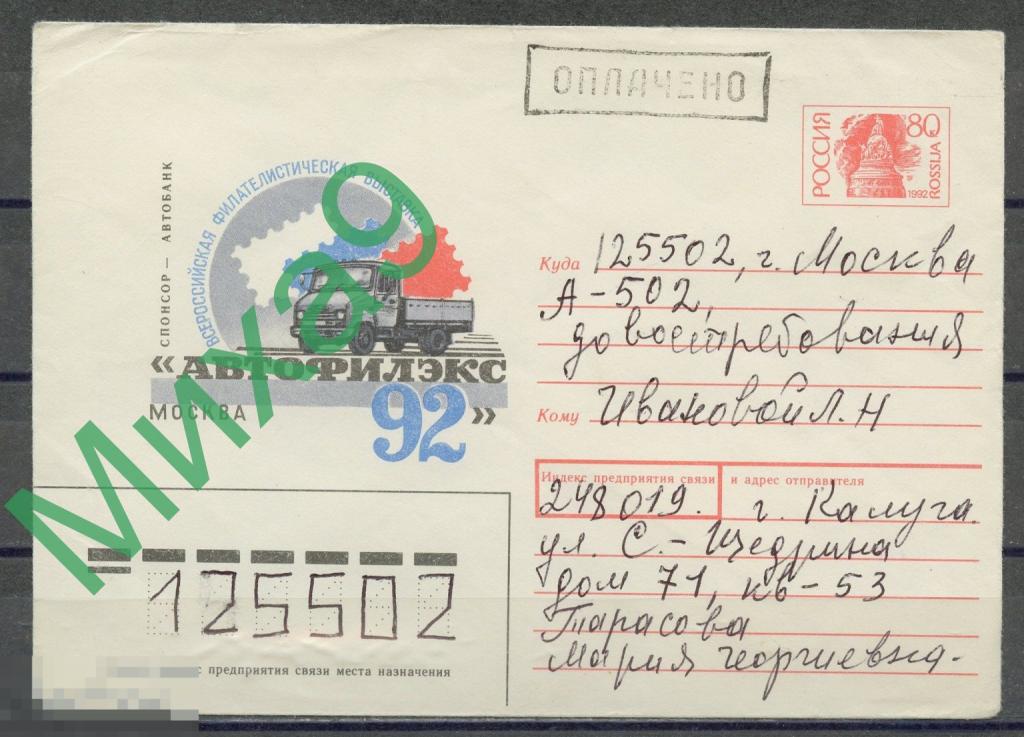 ОПЛАЧЕНО
РОССИЯ
80 к
1992
ROSSIJA
СПОНСОР — АВТОБАНК
ВСЕРОССИЙСКАЯ ФИЛАТЕЛИСТИЧЕСКАЯ ВЫСТАВКА
«АВТОФИЛЭКС
92»
МОСКВА
Михао
Куда 125502, г. Москва
А-502,
до востребования
Кому Ивановой Л. Н
Индекс предприятия связи и адрес отправителя
248019. г. Калуга.
ул. С.-Щедрина
дом 71, кв-53
Тарасова
Мария Георгиевна.
125502
предприятия связи места назначения